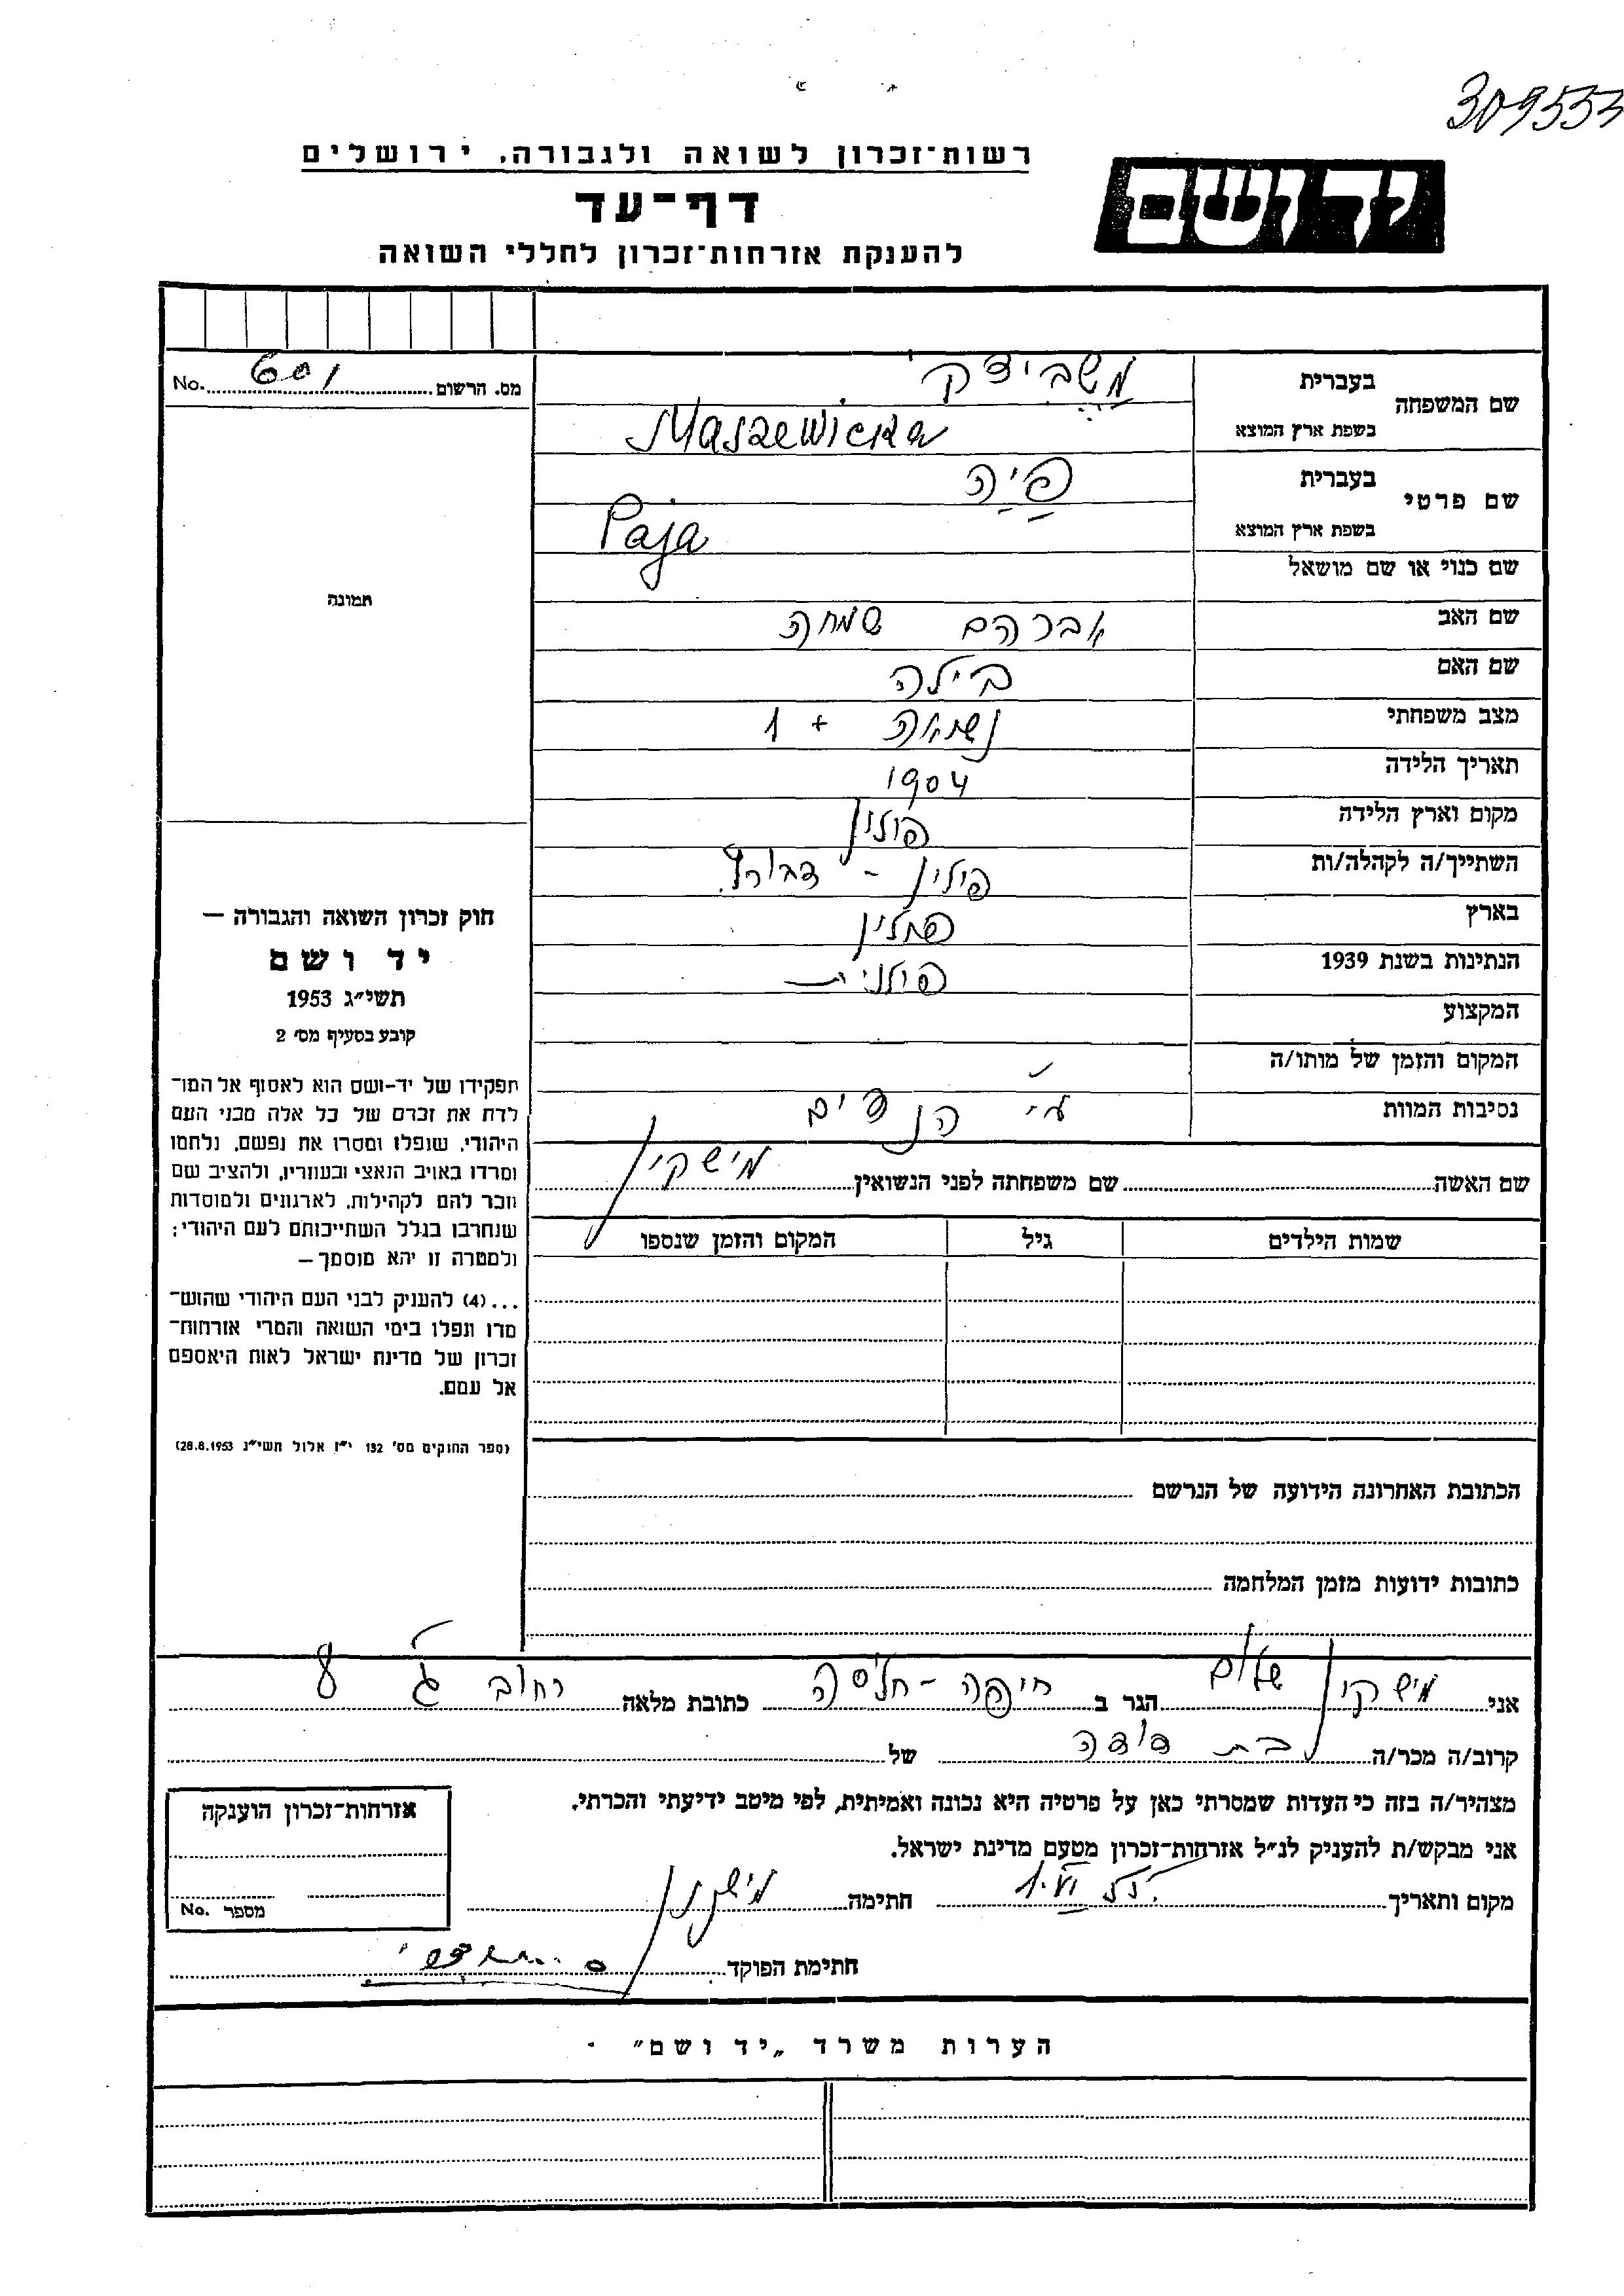 309553
רשות־זכרון לשואה ולגבורה, ירושלים
יד ושם
דף־עד
להענקת אזרחות־זכרון לחללי השואה
מס. הרשום 601 No.
שם המשפחה
בעברית
בשפת ארץ המוצא Maszewicka
שם פרטי
בעברית פיה
בשפת ארץ המוצא Paja
שם כנוי או שם מושאל
תמונה
שם האב אברהם שמחה
שם האם ביילה
מצב משפחתי נשואה + 1
תאריך הלידה 1904
מקום וארץ הלידה פולין
השתייך/ה לקהלה/ות פולין -
בארץ פולין
הנתינות בשנת 1939 פולנית
המקצוע
המקום והזמן של מותו/ה
נסיבות המוות ע"י
שם האשה שם משפחתה לפני הנשואין מישקין
שמות הילדים גיל המקום והזמן שנספו
חוק זכרון השואה והגבורה —
יד ושם
תשי״ג 1953
קובע בסעיף מס׳ 2
תפקידו של יד-ושם הוא לאסוף אל המו־
לדת את זכרם של כל אלה מבני העם
היהודי, שנפלו ומסרו את נפשם, נלחמו
ומרדו באויב הנאצי ובעוזריו, ולהציב שם
וזכר להם לקהילות, לארגונים ולמוסדות
שנחרבו בגלל השתייכותם לעם היהודי;
ולמטרה זו יהא מוסמך —
...(4) להעניק לבני העם היהודי שהוש־
מדו ונפלו בימי השואה והמרי אזרחות־
זכרון של מדינת ישראל לאות היאספם
אל עמם.
(ספר החוקים מס׳ 132 י״ז אלול תשי״ג 28.8.1953)
הכתובת האחרונה הידועה של הנרשם
כתובות ידועות מזמן המלחמה
אני מישקין שלום הגר ב חיפה - חליסה כתובת מלאה רחוב ג 8
קרוב/ה מכר/ה בת דודה של
מצהיר/ה בזה כי העדות שמסרתי כאן על פרטיה היא נכונה ואמיתית, לפי מיטב ידיעתי והכרתי.
אני מבקש/ת להעניק לנ״ל אזרחות־זכרון מטעם מדינת ישראל.
מקום ותאריך חתימה מישקין
חתימת הפוקד
אזרחות־זכרון הוענקה
מספר No.
הערות משרד „יד ושם״